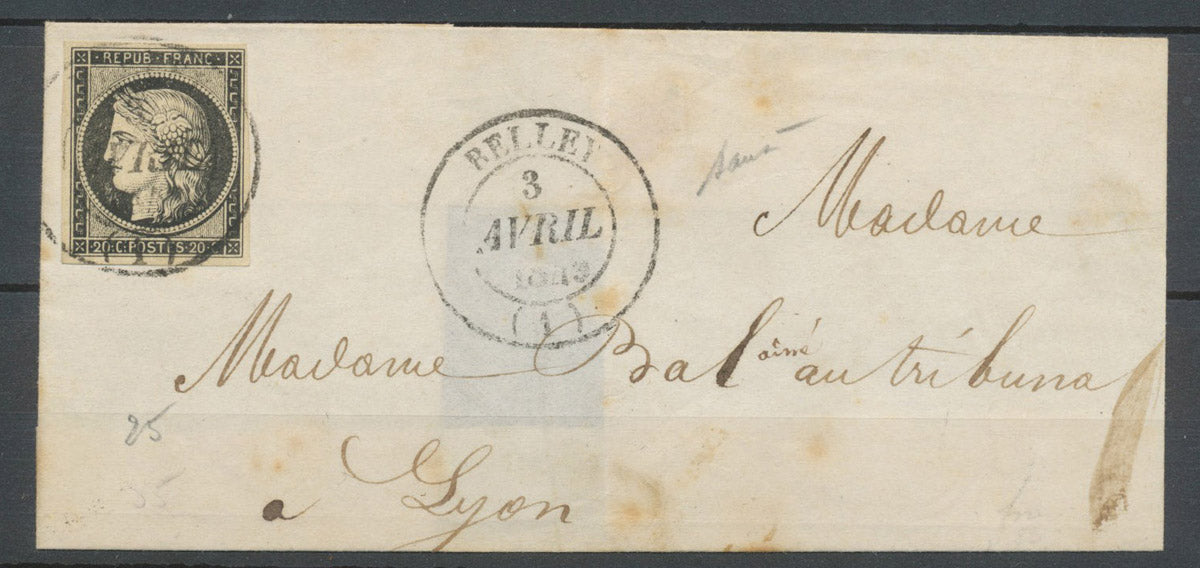 REPUB·FRANC·
20·C·POSTES·20·
BELLEY
3
AVRIL
(1)
Madame
Madame Bal aîné au tribuna
a Lyon
25